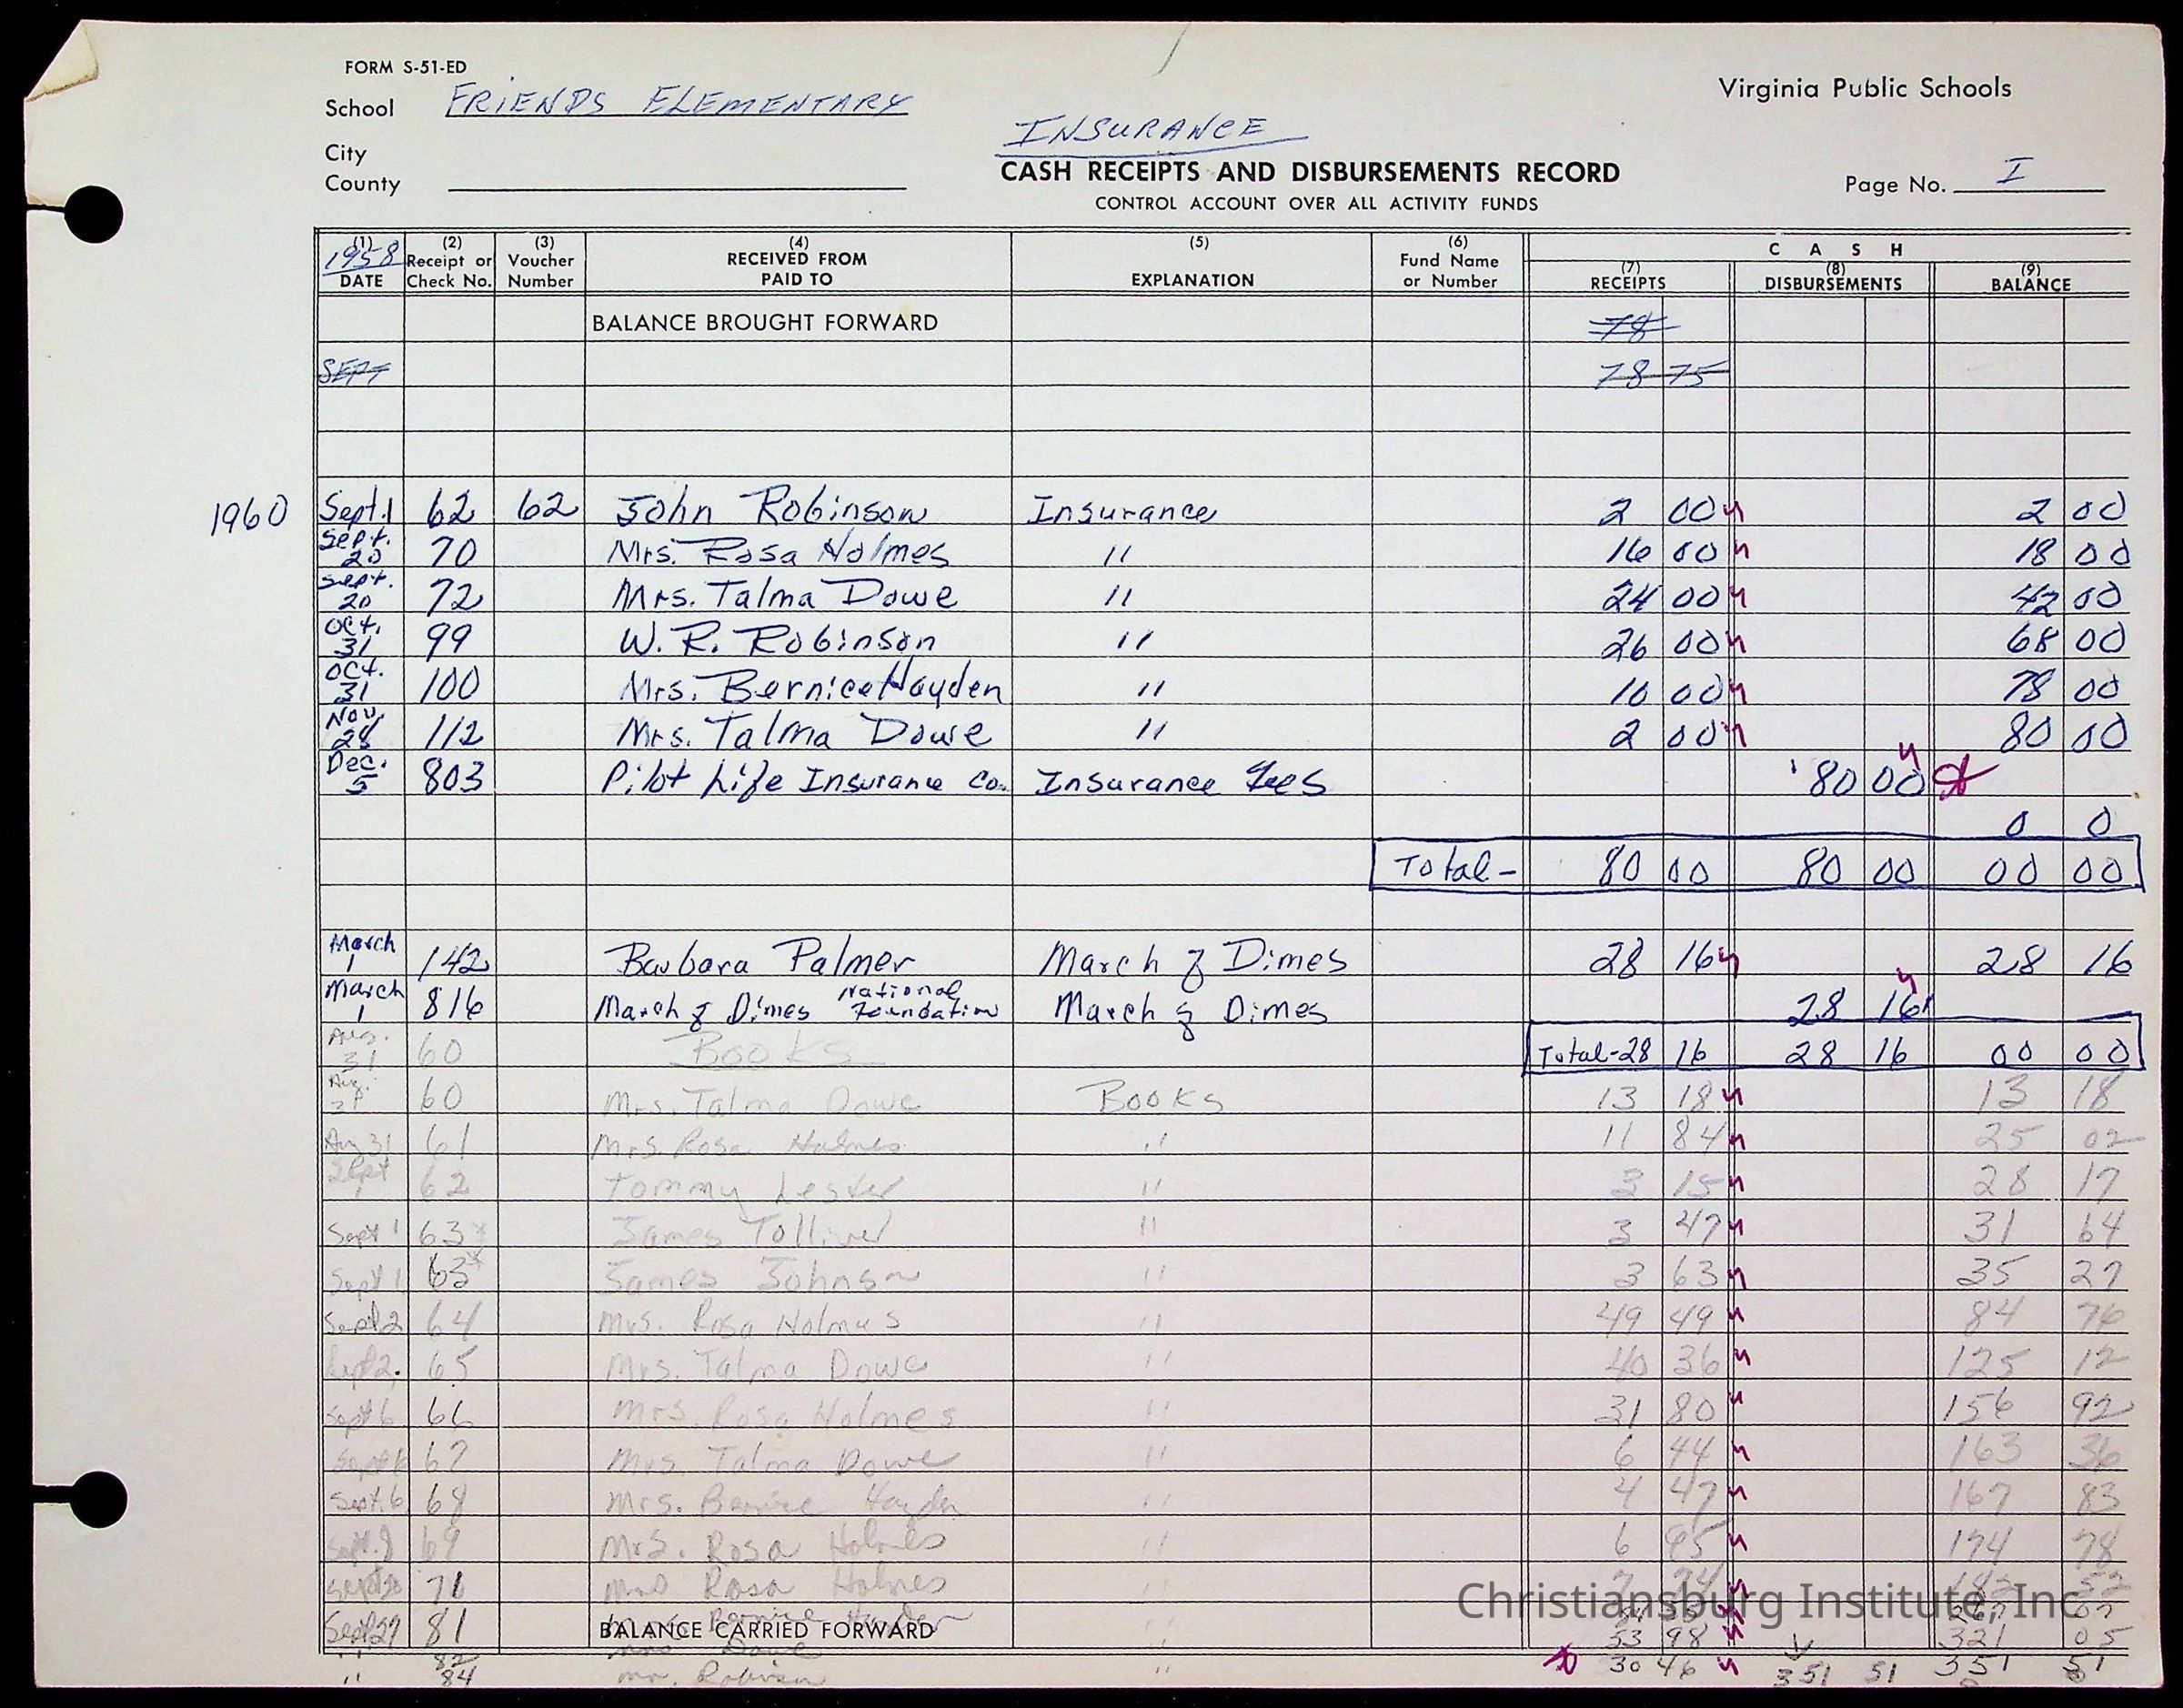 FORM S-51-ED
School FRIENDS ELEMENTARY
Virginia Public Schools
INSURANCE
City
County
CASH RECEIPTS AND DISBURSEMENTS RECORD
CONTROL ACCOUNT OVER ALL ACTIVITY FUNDS
Page No. I
(1) 1958 DATE (2) Receipt or Check No. (3) Voucher Number (4) RECEIVED FROM PAID TO (5) EXPLANATION (6) Fund Name or Number CASH (7) RECEIPTS (8) DISBURSEMENTS (9) BALANCE
BALANCE BROUGHT FORWARD 78
SEPT 78 75
1960 Sept. 1 62 62 John Robinson Insurance 2 00 2 00
Sept. 20 70 Mrs. Rosa Holmes " 16 00 18 00
Sept. 20 72 Mrs. Talma Dowe " 24 00 42 00
Oct. 31 99 W. R. Robinson " 26 00 68 00
Oct. 31 100 Mrs. Bernice Hayden " 10 00 78 00
Nov. 28 112 Mrs. Talma Dowe " 2 00 80 00
Dec. 5 803 Pilot Life Insurance Co. Insurance Fees 80 00
0 0
Total - 80 00 80 00 00 00
March 1 142 Barbara Palmer March of Dimes 28 16 28 16
March 1 816 March of Dimes National Foundation March of Dimes 28 16
Aug. 31 60 Books Total - 28 16 28 16 00 00
Aug. 60 Mrs. Talma Dowe Books 13 18 13 18
Aug 31 61 Mrs. Rosa Holmes " 11 84 25 02
Sept 1 62 Tommy Lester " 3 15 28 17
Sept 1 63 James Tolliver " 3 47 31 64
Sept 1 63 James Johnson " 3 63 35 27
Sept 2 64 Mrs. Rosa Holmes " 49 49 84 76
Sept 2. 65 Mrs. Talma Dowe " 40 36 125 12
Sept 6 66 Mrs. Rosa Holmes " 31 80 156 92
Sept 6 67 Mrs. Talma Dowe " 6 44 163 36
Sept. 6 68 Mrs. Bernice Hayden " 4 47 167 83
Sept. 9 69 Mrs. Rosa Holmes " 6 95 174 78
Sept 20 71 Mrs Rosa Holmes " 7 74 182 52
Christiansburg Institute, Inc.
Sept 27 81 Bernice Hayden "
BALANCE CARRIED FORWARD
" 82 Mrs Dowe " 53 98 321 05
" 84 Mr. Robinson " 30 46 351 51 351 51